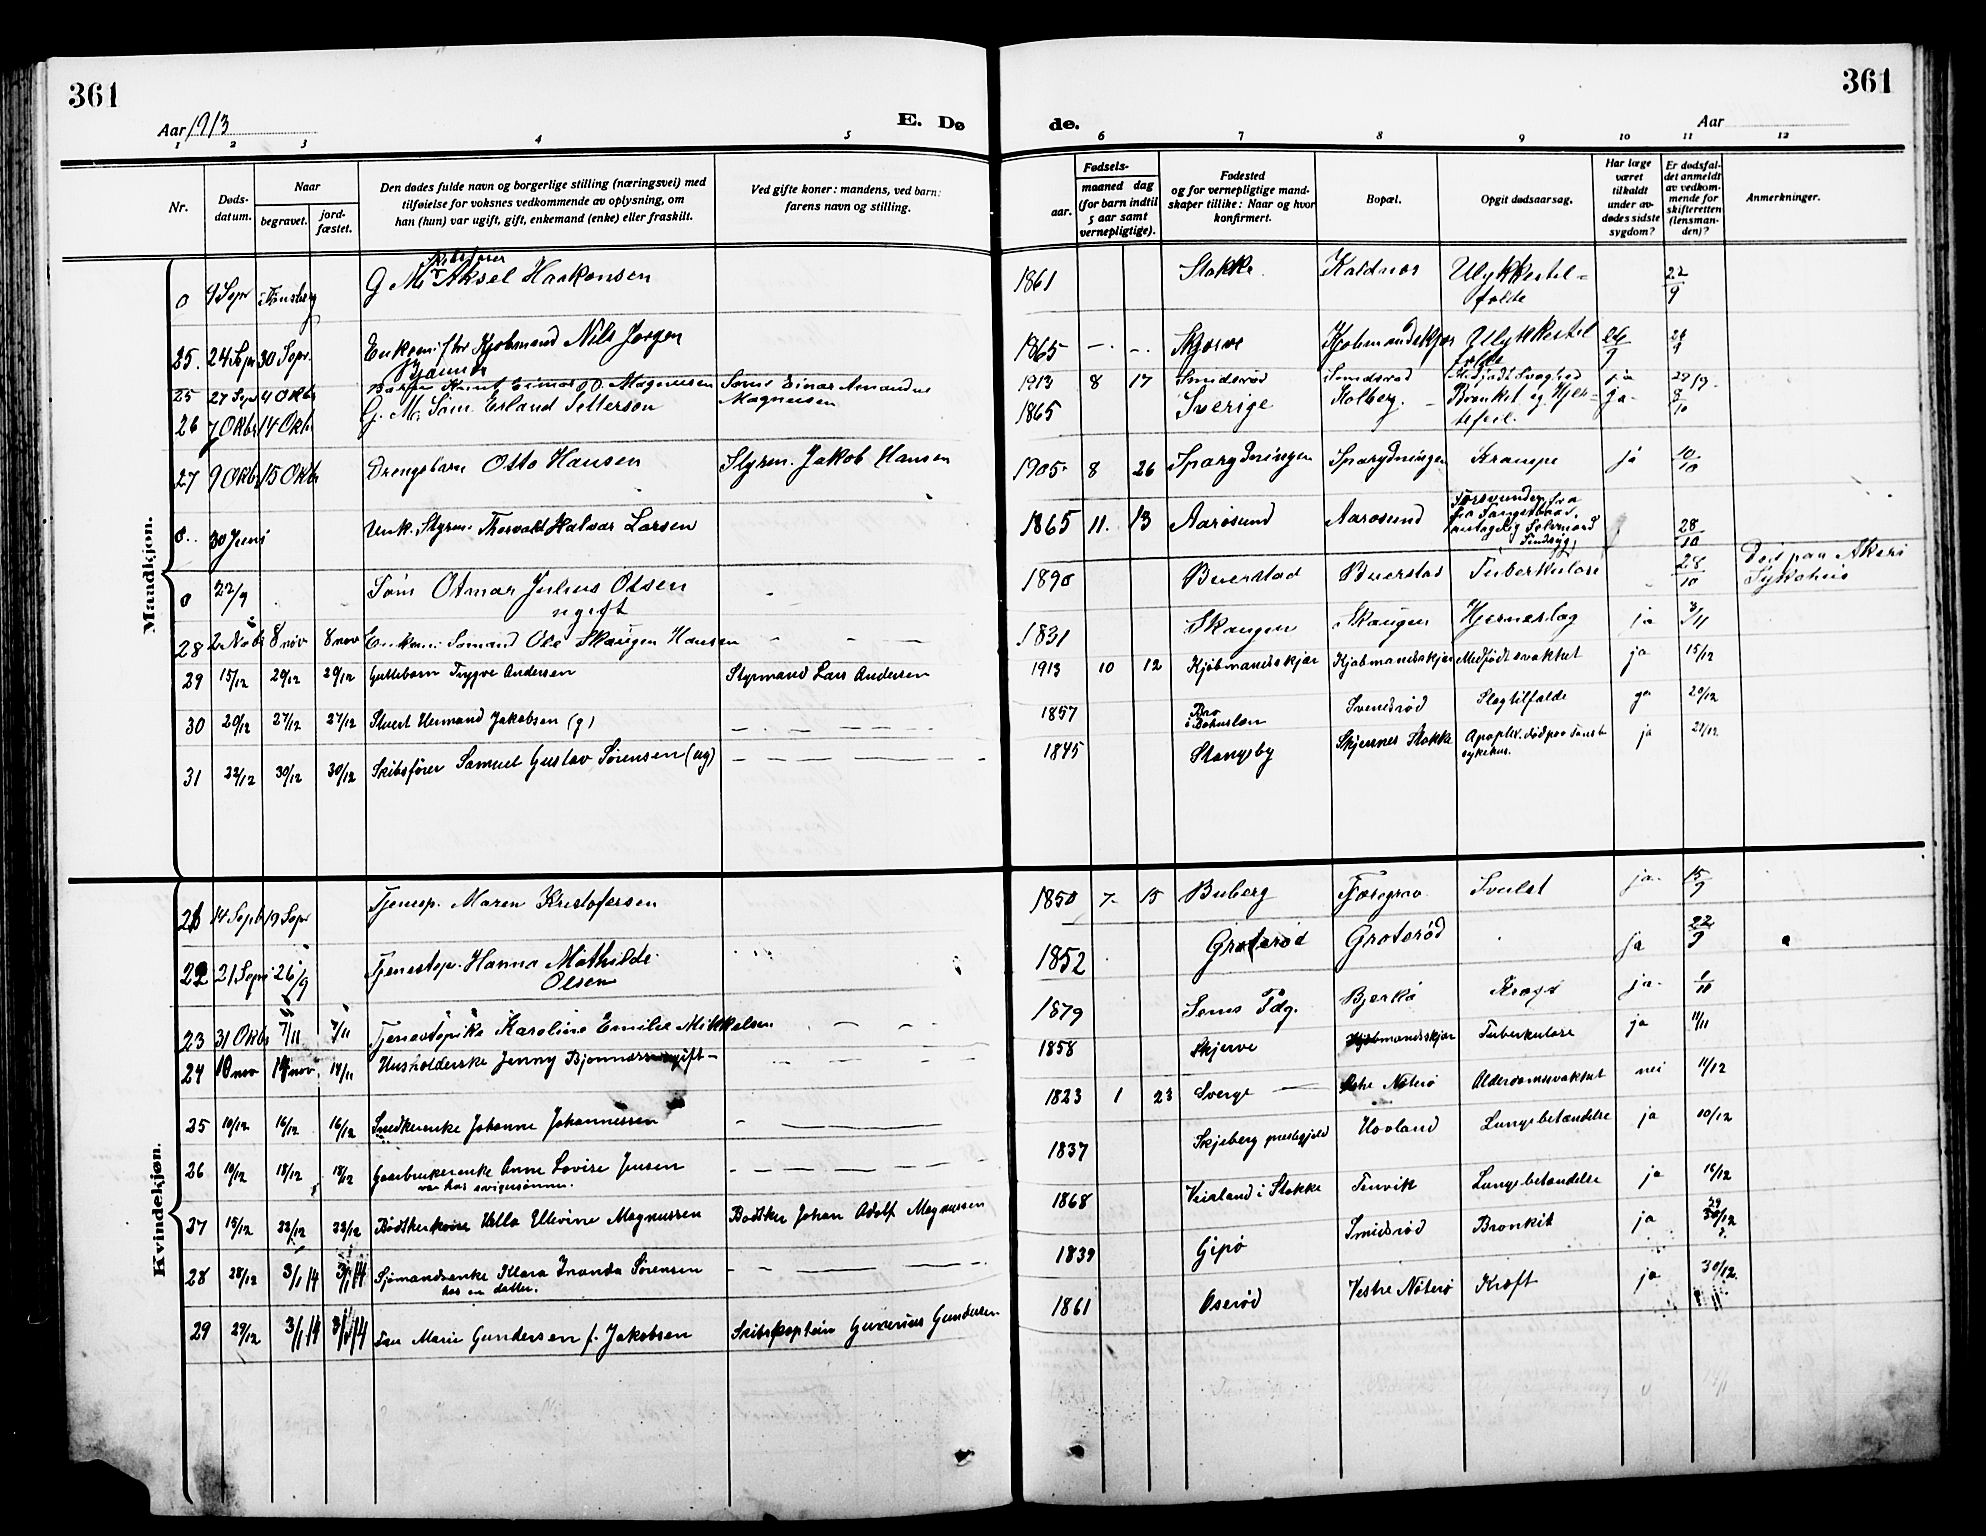 361
361
Aar 1913
E. Dø
de.
Aar
1 2 3 4 5 6 7 8 9 10 11 12
Nr.
Døds-
datum.
Naar
begravet.
jord-
fæstet.
Den dødes fulde navn og borgerlige stilling (næringsvei) med
tilføielse for voksnes vedkommende av oplysning, om
han (hun) var ugift, gift, enkemand (enke) eller fraskilt.
Ved gifte koner: mandens, ved barn:
farens navn og stilling.
Fødsels-
aar.
maaned dag
(for barn indtil
5 aar samt
vernepligtige).
Fødested
og for vernepligtige mand-
skaper tillike: Naar og hvor
konfirmert.
Bopæl.
Opgit dødsaarsag.
Har læge
været
tilkaldt
under av-
dødes sidste
sygdom?
Er dødsfal-
det anmeldt
av vedkom-
mende for
skifteretten
(lensman-
den)?
Anmerkninger.
Mandkjøn.
0 9 Sepr Tønsberg G. M. Skibsfører Aksel Haakonsen 1861 Stokke Kaldnes Ulykkestil-
folde 22/9
25. 24 Sepr 30 Sepr. Enkem. f hv Kjøbmand Nils Jørgen 1865 Skjerve Kjøbmandskjær Ulykkestil
folde 24/9
25 27 Sepr 4 Oktbr Knut Einar Magnussen Søms Einar Amandus
Magnussen 1913 8 17 Smidsrød Smidsrød Medfødt Svaghed ja 29/9.
26 7 Oktbr 14 Oktbr G. M. Søm. Erland Petterson 1865 Sverige Kolberg. Bronkit og Hjer-
tefeil. ja 8/10
27 9 Oktbr 15 Oktbr Drengebarn Otto Hansen Styrm. Jakob Hansen 1905 8 26 Sparydningen Sparydningen Krampe ja 10/10
0 30 Juni Unk. Styrm. Thorvald Halvar Larsen 1865 11. 13 Aarøsund Aarøsund Forsvunden fra
fra Fangstbaad,
antagelig Selvmord
Sindsyg 28/10
0 22/9 Søm Otmar Julius Olsen
ugift 1890 Buerstad Buerstad Tuberkulose 28/10 Død paa Akers
Sykehus
28 2 Novbr 8 nov 8 nov Enkem. Sømand Ole Skaugen Hansen 1831 Skaugen Skaugen Hjerneslag ja 3/11
29 15/12 29/12 29/12 Guttebarn Trygve Andersen Styrmand Lars Andersen 1913 10 12 Kjøbmandsskjær Kjøbmandsskjær Medfødt svakhet ja 15/12
30 20/12 27/12 27/12 Stuert Herman Jakobsen (g) 1857 Bro
i Bohuslen Svendsrød Slagtilfælde ja 20/12
31 22/12 30/12 30/12 Skibsfører Samuel Gustav Sørensen (ug) 1845 Stangeby Skjersnes Stokke Apoplex. død paa Tønsb
sykehus. ja 21/12
Kvindekjøn.
21 14 Septb 19 Sepr Tjenesp. Maren Kristofersen 1850 7. 15 Buberg Fjæregrav Svulst ja. 15/9
22 21 Sepr 26/9 Tjenestep. Hanna Mathilde
Olsen 1852 Grøterød Grøterød ja 22/9
23 31 Oktbr 7/11 7/11 Tjenestepike Karoline Emilie Mikkelsen 1879 Sems Pdg. Bjerkø Kræft ja. 1/11
24 10 nov 14 nov. 14/11 Husholderske Jenny Bjønnæs ugift 1858 Skjerve Kjøbmandsskjær Tuberkulose ja 11/11
25 10/12 16/12 16/12 Snedkerenke Johanne Johannessen 1823 1 23 Sverge Østre Nøterø Alderdomssvakhet nei 11/12
26 10/12 18/12 18/12 Gaardbrukerenke Anne Lovise Jensen
var hos svigersønnen. 1837 Skjeberg prestegjeld Hovland Lungebetændelse ja 10/12
27 15/12 22/12 22/12 Bødtkerkone Hella Ellevine Magnussen Bødtker Johan Adolf Magnussen 1868 Veialand i Stokke Tenvik Lungebetændelse ja 16/12
28 28/12 3/1 14 3/1 14 Sjømandsenke Klara Inanda Sørensen
hos en datter. 1839 Gipø Smidsrød Bronkit ja 29/12
29 29/12 3/1 14 3/1 14 Fru Marie Gundersen f. Jakobsen Skibskaptein Gunerius Gundersen 1861 Oserød Vestre Nøterø Kræft ja 30/12.